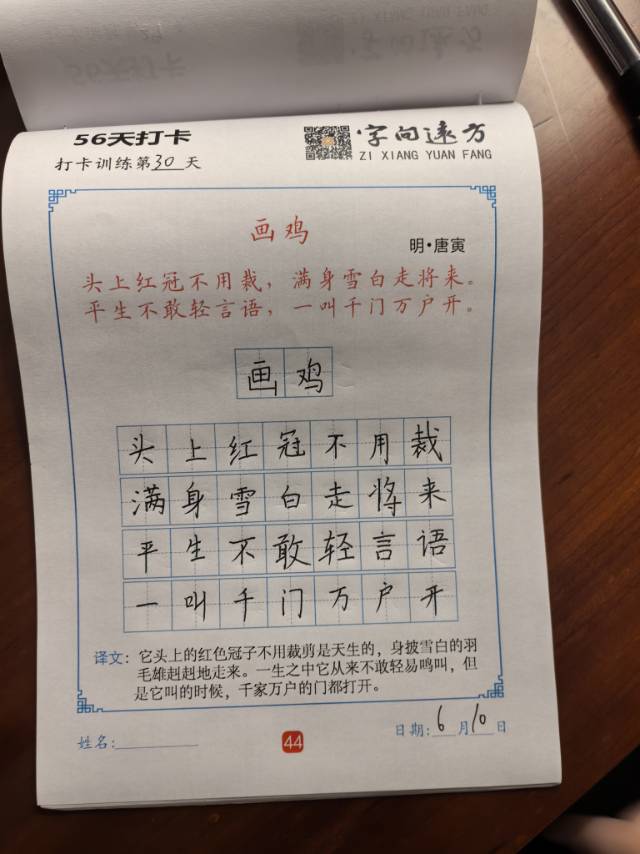 56天打卡
字向远方
ZI XIANG YUAN FANG
打卡训练第30天
画鸡
明·唐寅
头上红冠不用裁，满身雪白走将来。
平生不敢轻言语，一叫千门万户开。
画鸡
头上红冠不用裁
满身雪白走将来
平生不敢轻言语
一叫千门万户开
译文：它头上的红色冠子不用裁剪是天生的，身披雪白的羽
毛雄赳赳地走来。一生之中它从来不敢轻易鸣叫，但
是它叫的时候，千家万户的门都打开。
姓名：
44
日期：6月10日